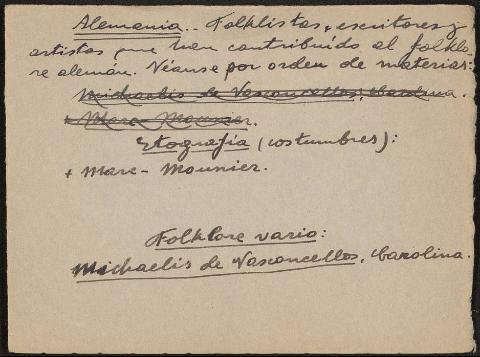 Alemania.. Folklistas, escritores y
artistas que han contribuído al folklo-
re alemán. Véanse por orden de materias:
Michaelis de Vasconcellos, Carolina.
+ Marc Mounier.
Etografía (costumbres):
+ Marc - Mounier.
Folklore vario:
Michaelis de Vasconcellos, Carolina.